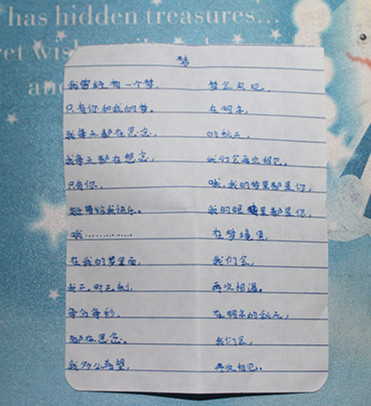 has hidden treasures...
ret wis
and
梦
我曾经有一个梦,
只有你和我的梦。
我每天都在思念,
我每天都在想念,
只有你,
给我快乐。
哦…………
在我的梦里面,
我无时无刻,
每分每秒,
都在思念。
我多么希望,
梦会实现。
在明年,
的秋天,
我们会再次相见。
哦,我的梦里都是你,
我的眼里都是你,
在梦境里,
我们会,
再次相遇。
在明年的秋天,
我们会,
再次相见。